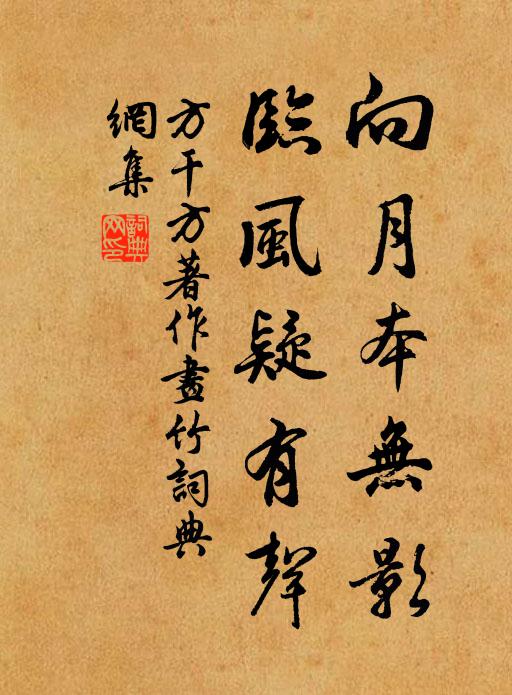 向月本無影
臨風疑有聲
方干方著作畫竹詞典
網集
詞典
网印